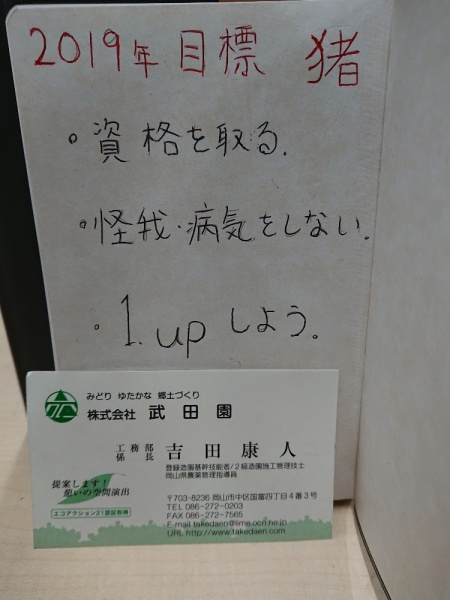 2019年 目標 猪
・資格を取る.
・怪我・病気をしない.
・1.up しよう。
みどり ゆたかな 郷土づくり
株式会社 武田園
工務部
係長 吉田康人
登録造園基幹技能者/2級造園施工管理技士
岡山県農業管理指導員
提案します!
憩いの空間演出
エコアクション21認証取得
〒703-8236 岡山市中区国富四丁目4番3号
TEL 086-272-0203
FAX 086-272-7565
E-mail takedaen@lime.ocn.ne.jp
URL http://www.takedaen.com